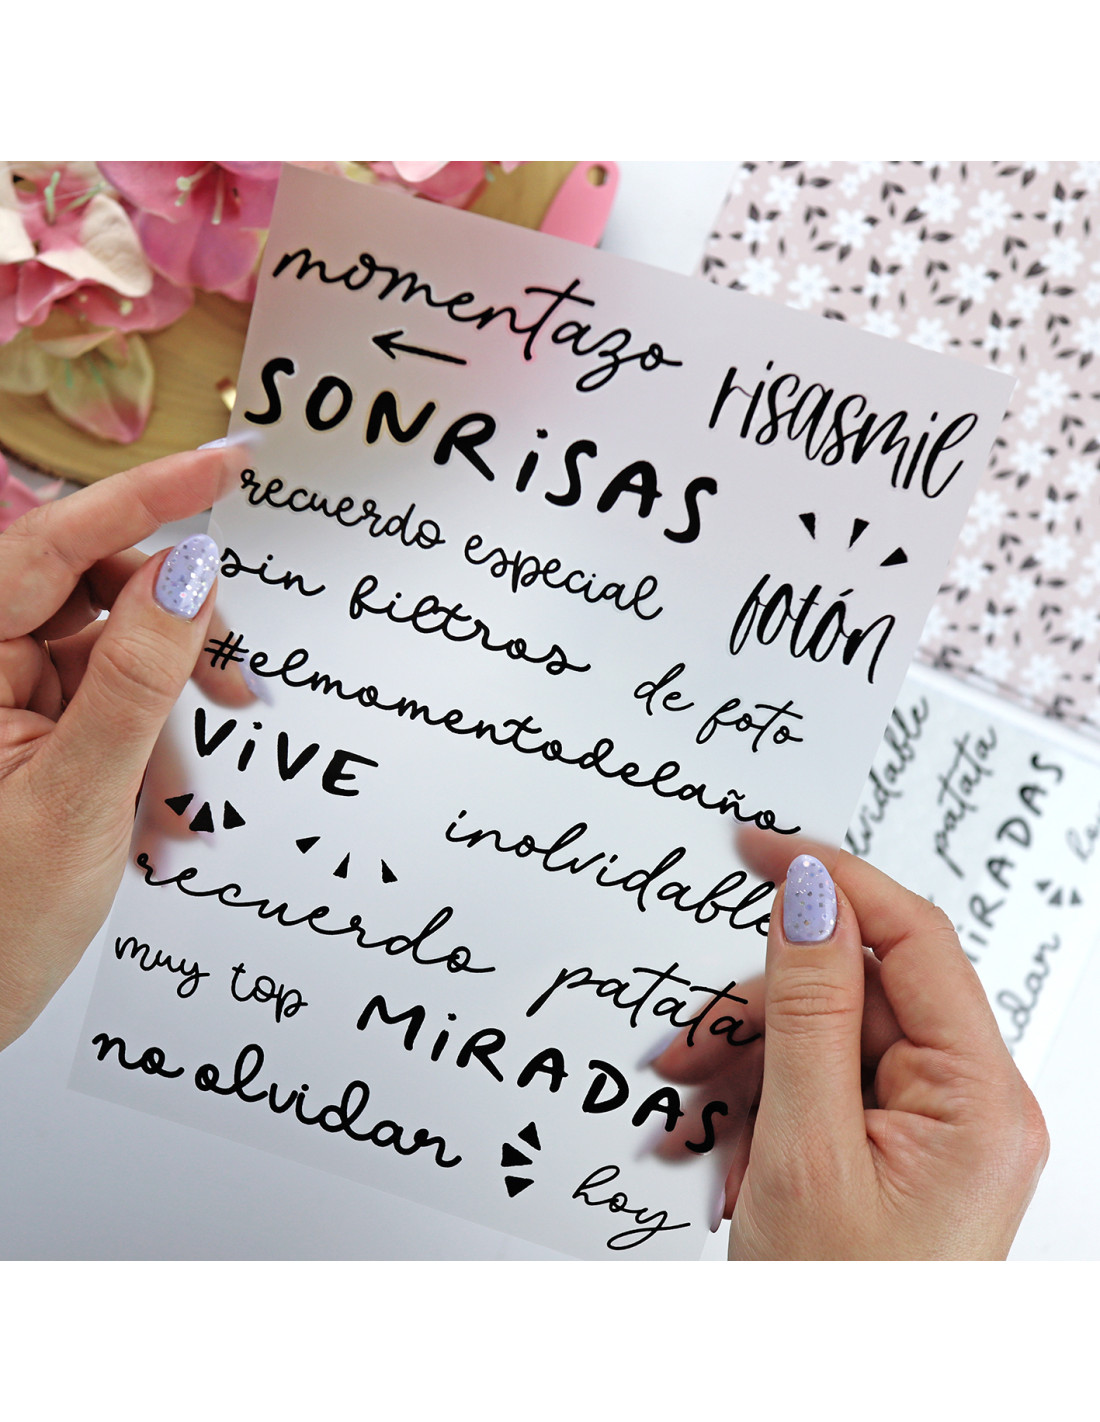 momentazo
risasmil
SONRiSAS
recuerdo especial
fotón
sin filtros
de foto
#elmomentodelaño
ViVE
inolvidable
recuerdo
patata
muy top
MiRADAS
no olvidar
hoy
patata
MiRADAS